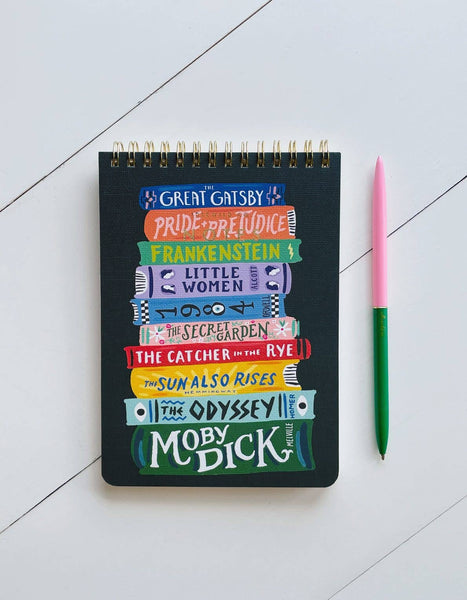 THE
GREAT GATSBY
PRIDE + PREJUDICE
FRANKENSTEIN
LITTLE
WOMEN
ALCOTT
1984
ORWELL
THE SECRET GARDEN
THE CATCHER IN THE RYE
THE SUN ALSO RISES
HEMINGWAY
THE ODYSSEY
HOMER
MOBY
DICK
MELVILLE